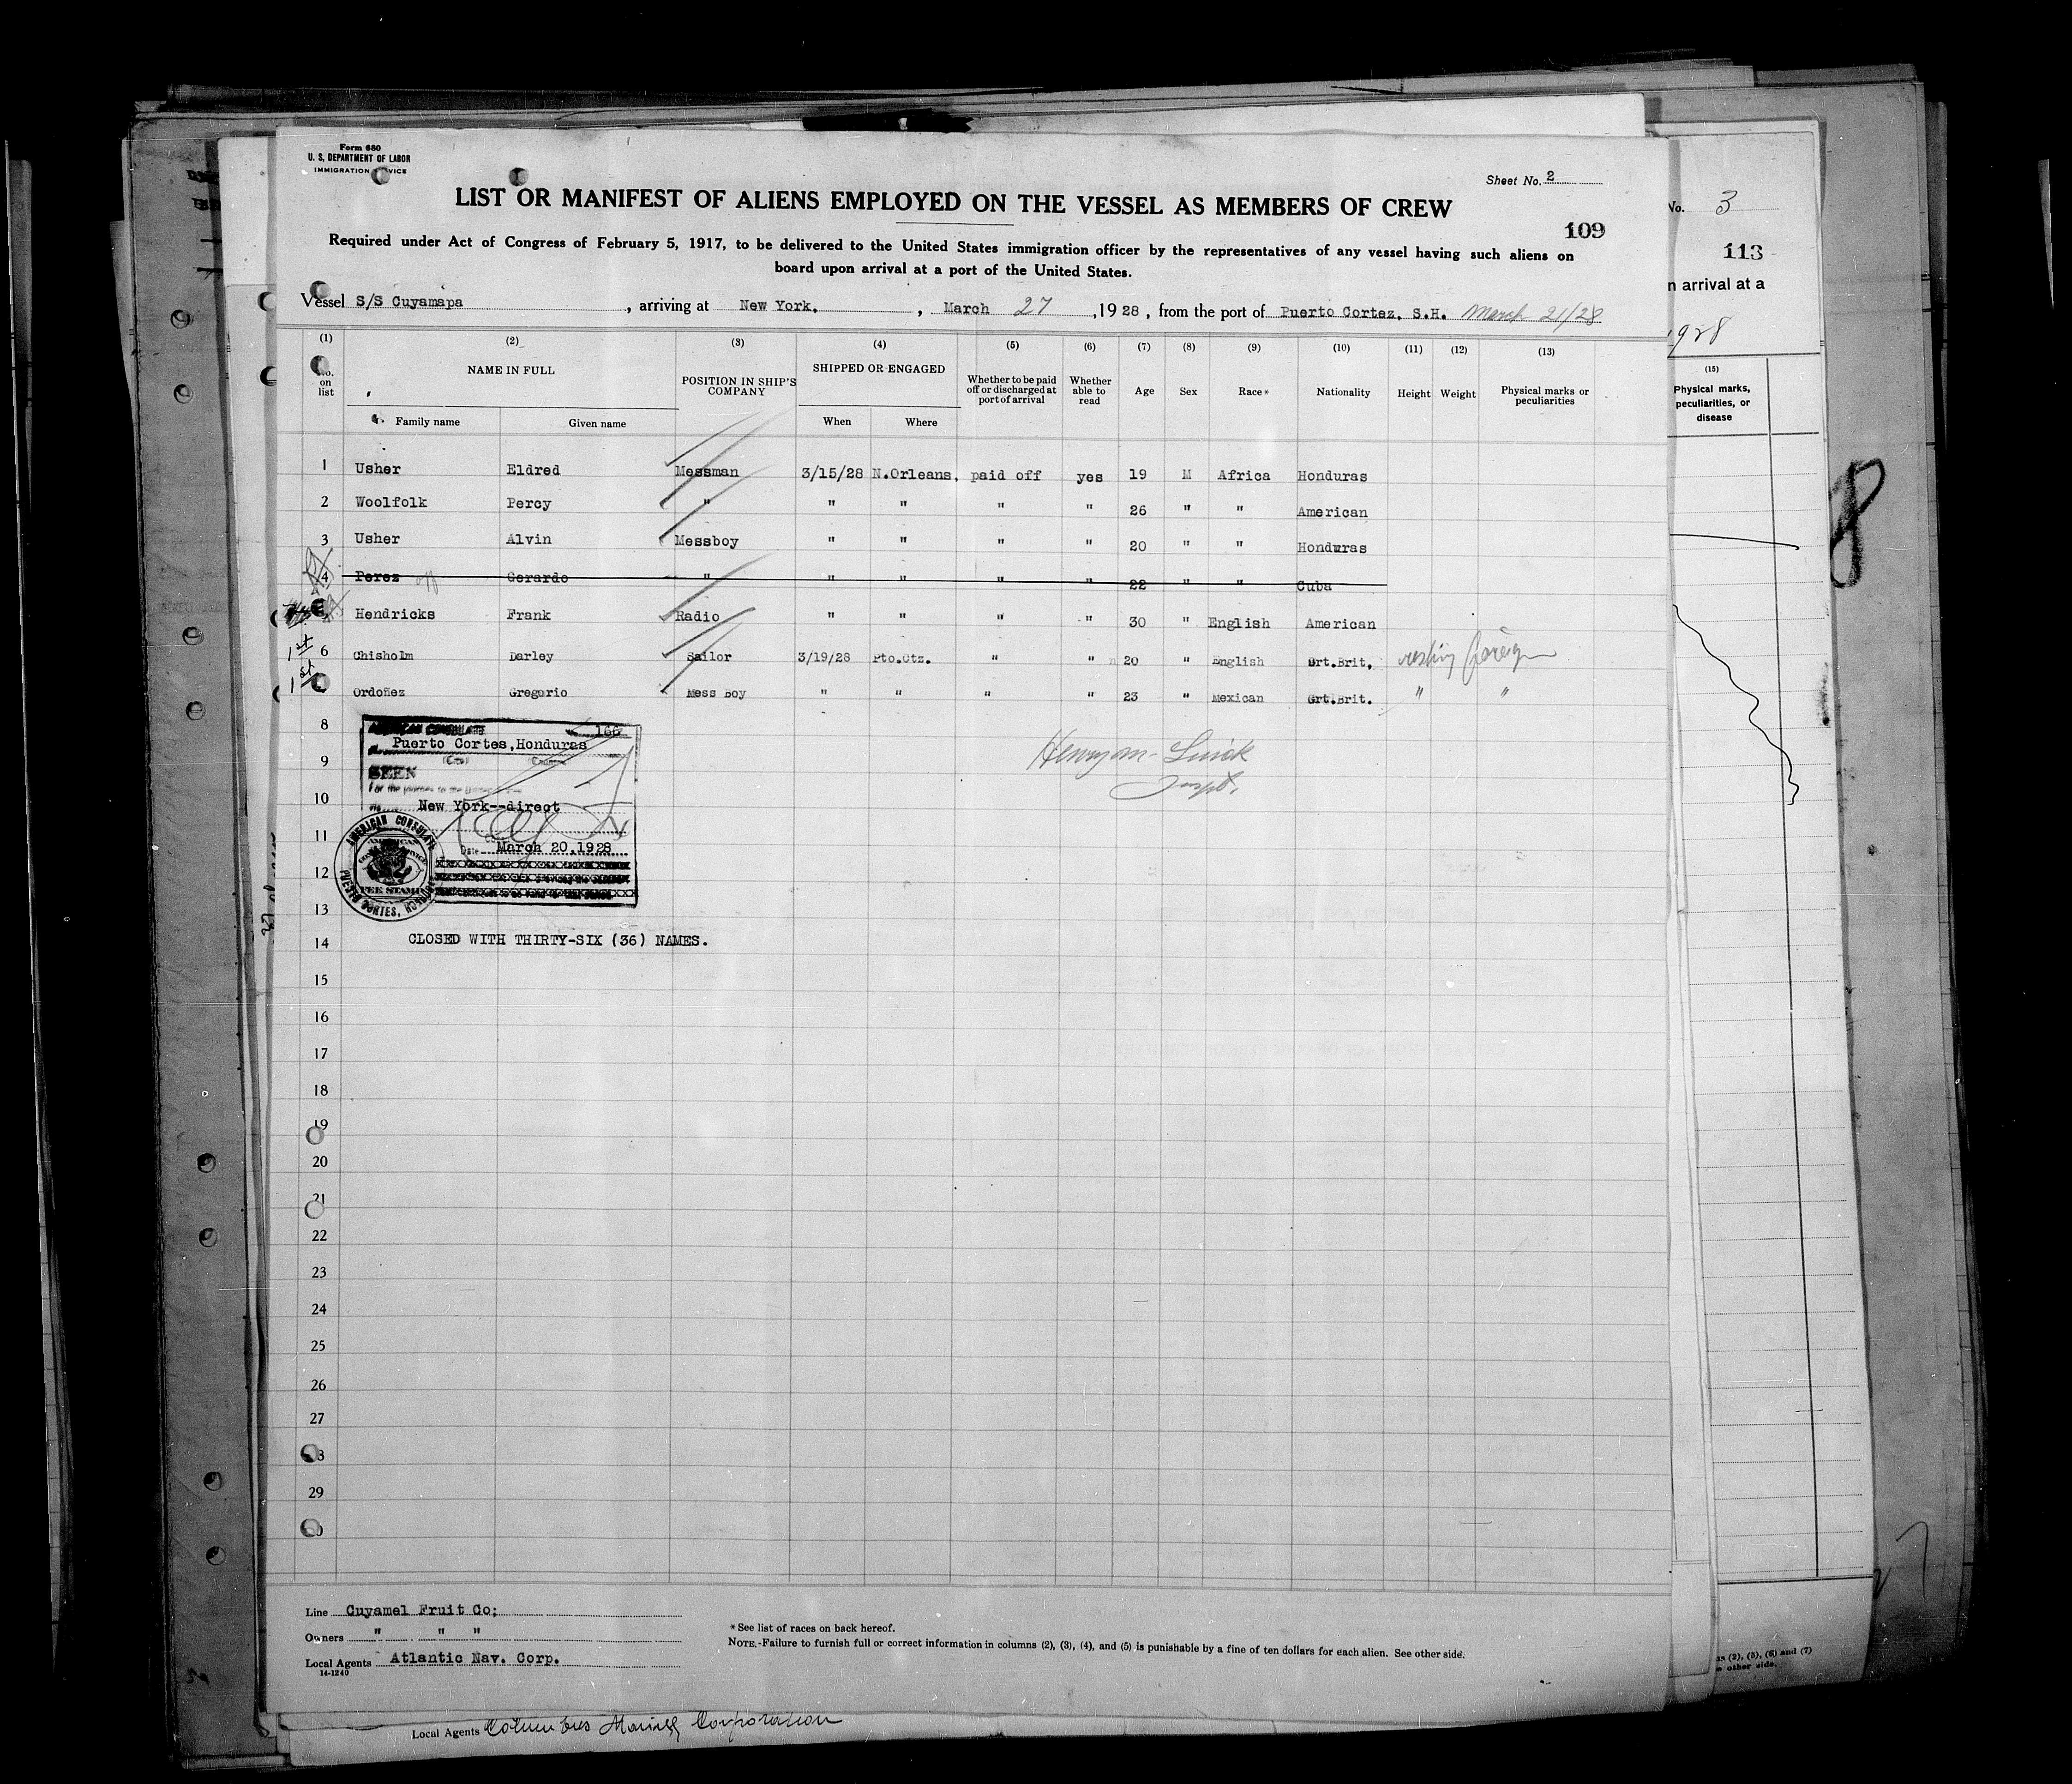 Form 680
U. S. DEPARTMENT OF LABOR
IMMIGRATION SERVICE
Sheet No. 2
LIST OR MANIFEST OF ALIENS EMPLOYED ON THE VESSEL AS MEMBERS OF CREW
109
Required under Act of Congress of February 5, 1917, to be delivered to the United States immigration officer by the representatives of any vessel having such aliens on
board upon arrival at a port of the United States.
Vessel S/S Cuyamapa, arriving at New York., March 27, 1928, from the port of Puerto Cortez, S.H. March 21/28
(1) (2) (3) (4) (5) (6) (7) (8) (9) (10) (11) (12) (13)
No. on list NAME IN FULL POSITION IN SHIP'S COMPANY SHIPPED OR ENGAGED Whether to be paid off or discharged at port of arrival Whether able to read Age Sex Race* Nationality Height Weight Physical marks or peculiarities
Family name Given name When Where
1 Usher Eldred Messman 3/15/28 N.Orleans, paid off yes 19 M Africa Honduras
2 Woolfolk Percy " " " " " 26 " " American
3 Usher Alvin Messboy " " " " 20 " " Honduras
4 Perez off Gerardo " " " " " 22 " " Cuba
Hendricks Frank Radio " " " " 30 " English American
1st 6 Chisholm Darley Sailor 3/19/28 Pto.Ctz. " " 20 " English Grt.Brit. reship foreign
1st Ordoñez Gregorio Mess Boy " " " " 23 " Mexican Grt.Brit. " "
8
AMERICAN CONSULATE 166
Puerto Cortes,Honduras
(City) (Country)
9
SEEN
For the journey to the United States
10
New York--direct
11
Date March 20,1928
12
AMERICAN CONSULATE
AMERICAN
CONSULAR SERVICE
FEE STAMP
PUERTO CORTES, HONDURAS
Henry M. Luick
Inspt.
13
14 CLOSED WITH THIRTY-SIX (36) NAMES.
15
16
17
18
19
20
21
22
23
24
25
26
27
28
29
30
Line Cuyamel Fruit Co;
Owners " " "
Local Agents Atlantic Nav. Corp.
14-1240
*See list of races on back hereof.
NOTE.-Failure to furnish full or correct information in columns (2), (3), (4), and (5) is punishable by a fine of ten dollars for each alien. See other side.
Local Agents Columbus Marine Corporation
No. 3
113
n arrival at a
1928
(15)
Physical marks,
peculiarities, or
disease
8
ns (2), (5), (6) and (7)
other side.